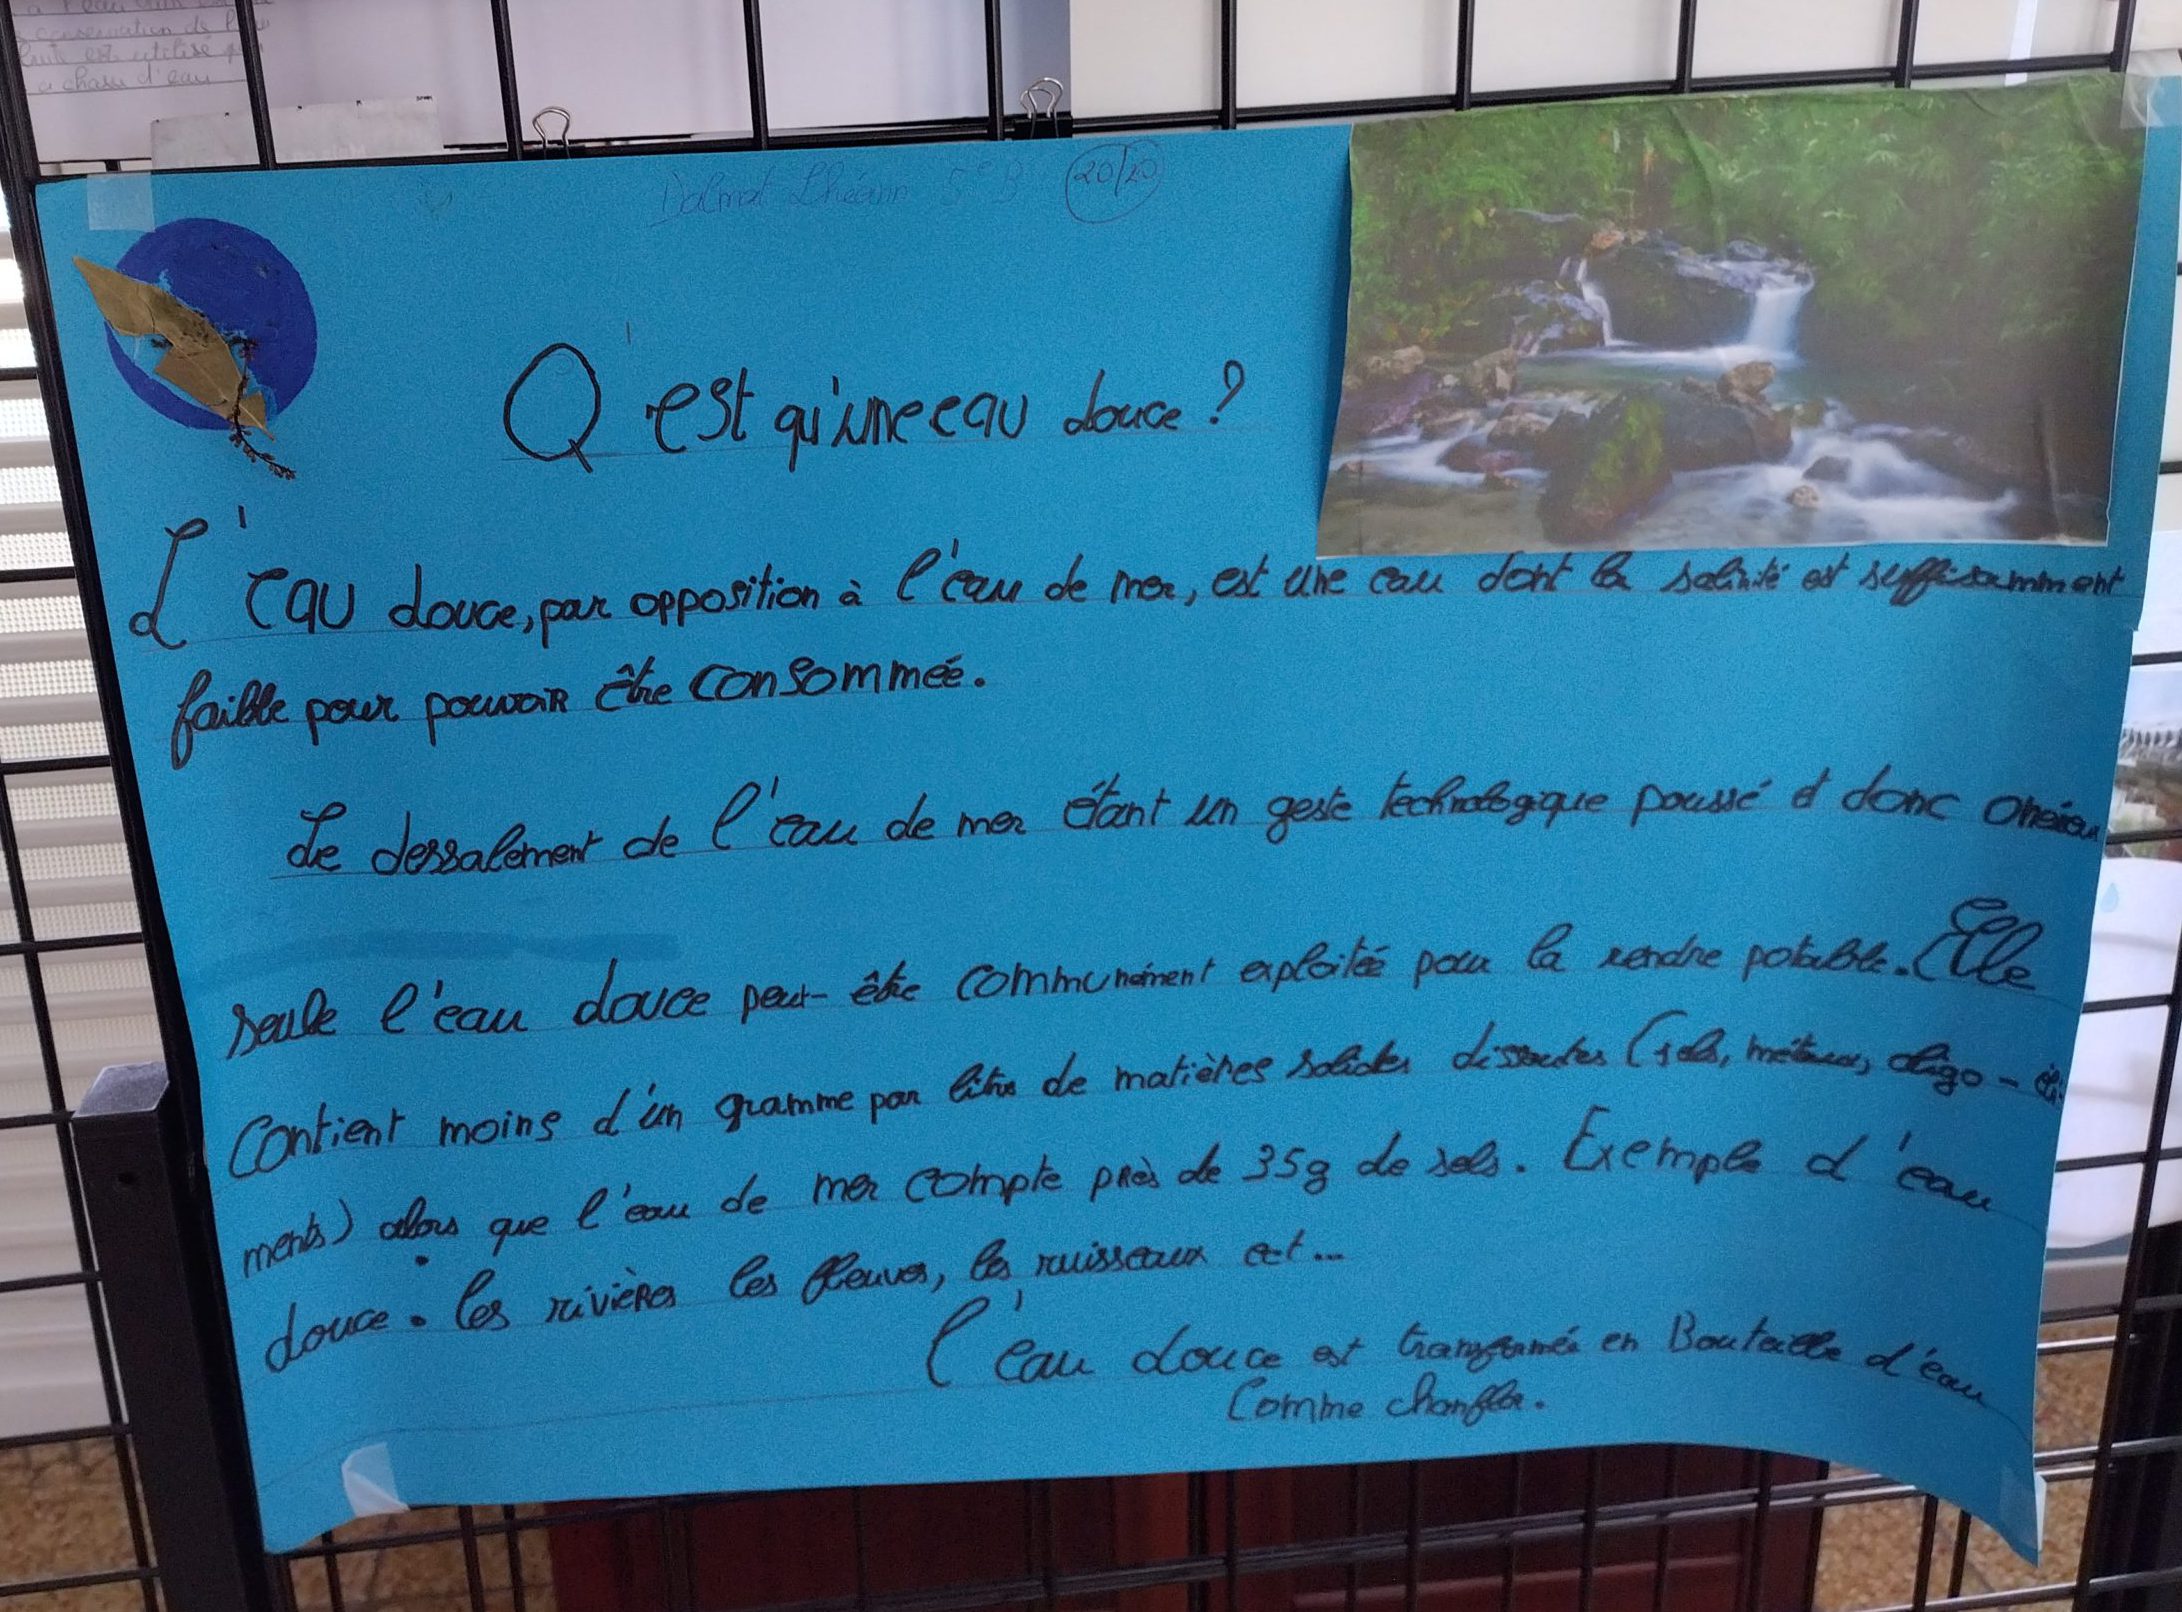 conservation de l'eau
est utilisé
chasse d'eau
Dalmat Lhéann 5e B 20/20
Q'est qu'une eau douce ?
L'eau douce, par opposition à l'eau de mer, est une eau dont la salinité est suffisamment
faible pour pouvoir être consommée.
Le dessalement de l'eau de mer étant un geste technologique poussé et donc onéreu
seule l'eau douce peut-être communément exploitée pour la rendre potable. Elle
Contient moins d'un gramme par litre de matières solides dissoutes (sels, métaux, oligo-élé
ments) alors que l'eau de mer compte près de 35g de sels. Exemple d'eau
douce : les rivières les fleuves, les ruisseaux ect...
l'eau douce est transformée en Bouteille d'eau
Comme chanflor.